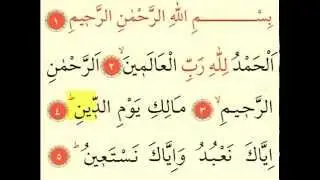 بِسْمِ اللهِ الرَّحْمٰنِ الرَّحٖيمِ ﴿١﴾
اَلْحَمْدُ لِلّٰهِ رَبِّ الْعَالَمٖينَۙ ﴿٢﴾ اَلرَّحْمٰنِ
الرَّحٖيمِۙ ﴿٣﴾ مَالِكِ يَوْمِ الدّٖينِۜ ﴿٤﴾
اِيَّاكَ نَعْبُدُ وَاِيَّاكَ نَسْتَعٖينُۜ ﴿٥﴾